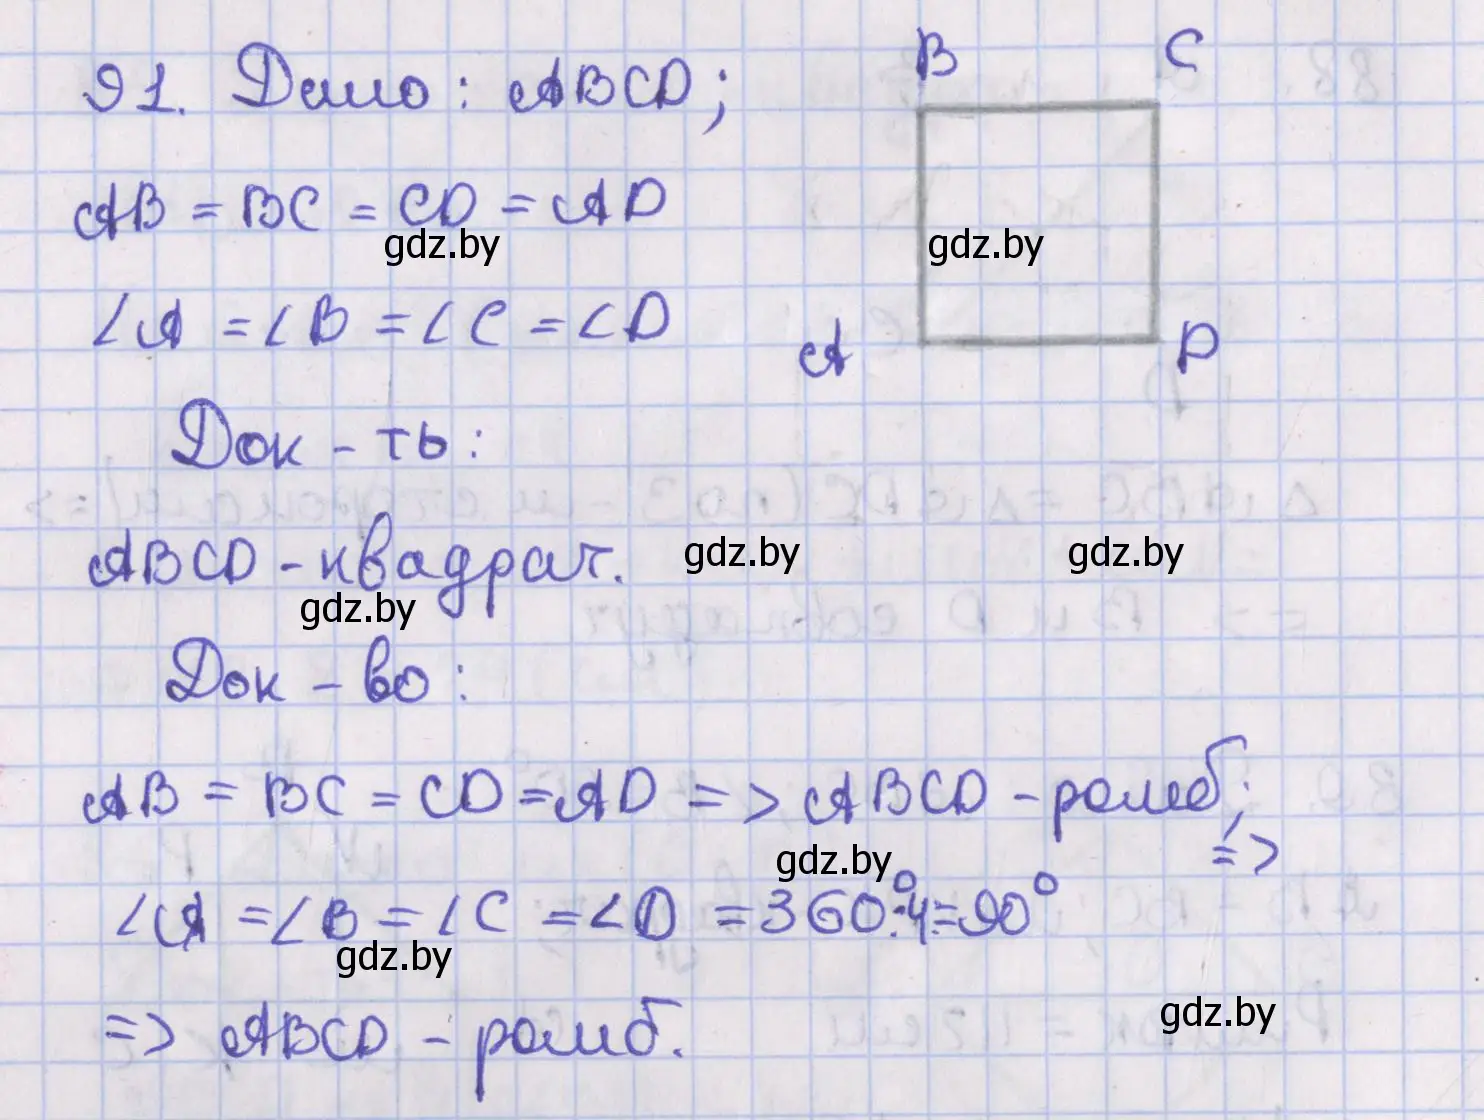 91. Дано: ABCD;
B C
AB = BC = CD = AD
gdz.by gdz.by
∠A = ∠B = ∠C = ∠D
A D
Док-ть:
ABCD - квадрат.
gdz.by gdz.by
gdz.by
Док-во:
AB = BC = CD = AD => ABCD - ромб; =>
gdz.by
∠A = ∠B = ∠C = ∠D = 360°:4 = 90°
gdz.by
=> ABCD - ромб.
gdz.by